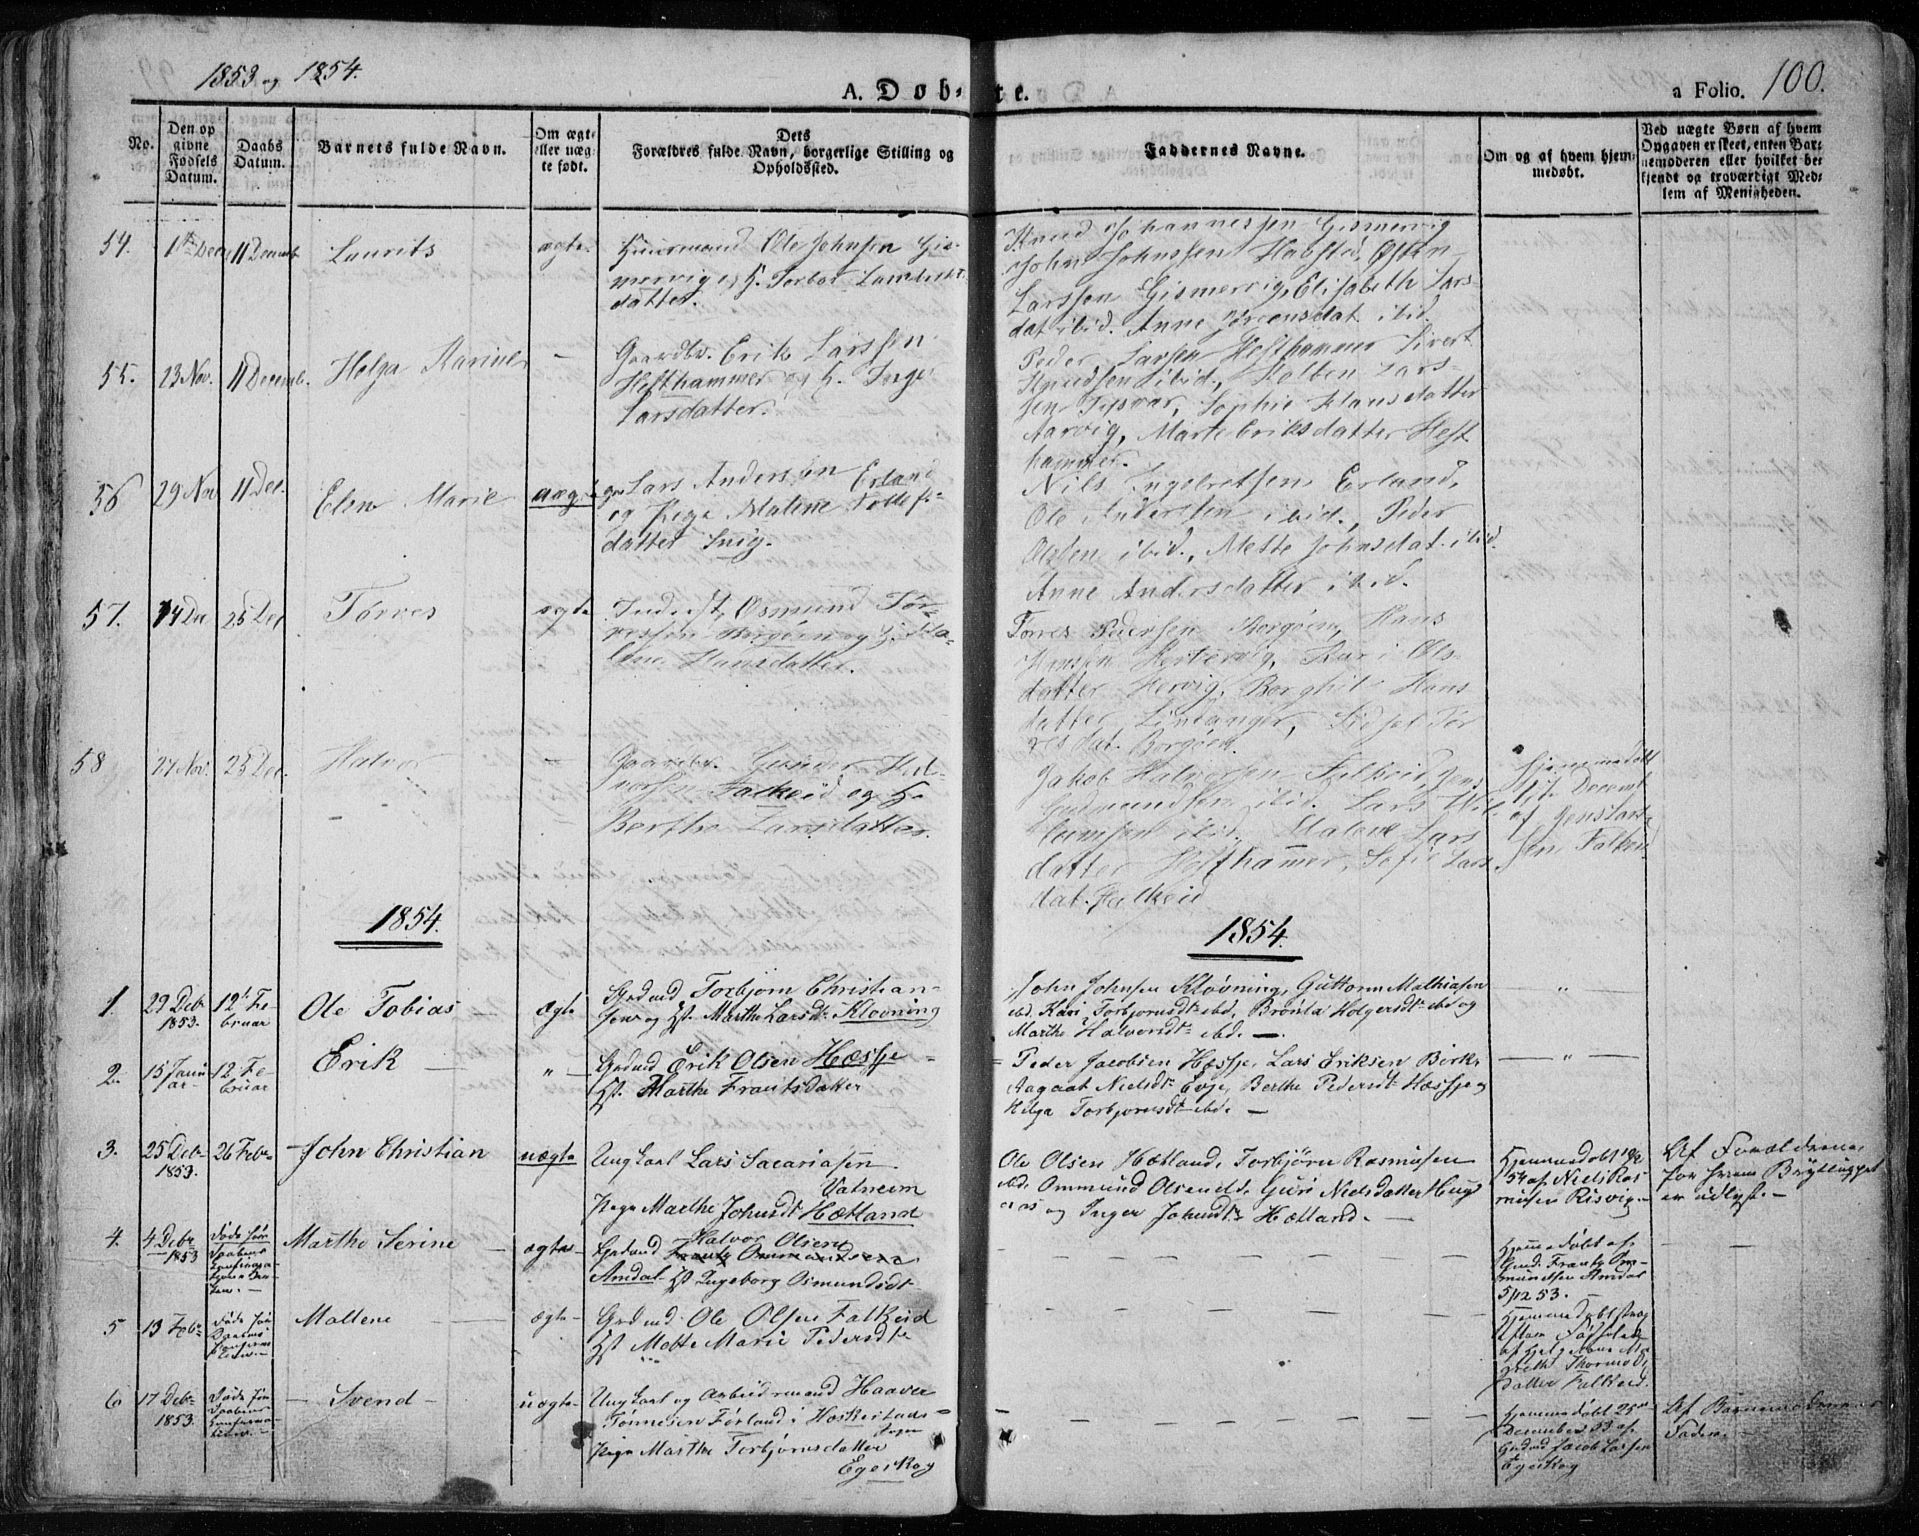 1853 og 1854.
A. Døbte.
a Folio. 100.
No.
Den op
givne
Fødsels
Datum.
Daabs
Datum.
Barnets fulde Navn.
Om ægte
eller uæg-
te født.
Dets
Forældres fulde Navn, borgerlige Stilling og
Opholdssted.
Faddernes Navne.
Om og af hvem hjem-
medøbt.
Ved uægte Børn af hvem
Opgaven er skeet, enten Bar-
nemoderen eller hvilket be-
kjendt og troværdigt Med-
lem af Menigheden.
54.
11 Decemb
Laurits
ægte
Huusmand Ole Johnsen Gis-
mervig og H. Torbor Lambrikts
datter.
Knud Johannessen Gismervig
John Johnssen Habsted, Østen
Larssen Gismervig, Elisabeth Lars-
dat ibid. Anne Jørensdat. ibid.
55.
23 Nov.
11 Decemb.
Helga Karine
—
Gaardbr. Erik Larssen
Hesthammer og H. Inger
Larsdatter.
Peder Larsen Hesthammer Sivert
Knudsen ibid, Kolben Lars-
sen Tysvær, Sophie Klausdatter
Aarvig, Marte Eriksdatter Hest
hammer.
56
29 Nov
11 Dec.
Elen Marie
uægte
Lars Anderssen Erland
og Pige Malene Tollefs-
datter Snig.
Nils Ingebretsen Erland,
Ole Anderssen ibid., Peder
Olsen ibid., Mette Johnsdat. ibid.
Anne Andersdatter ibid.
57.
14 Dec
25 Dec
Tørres
ægte
Inderst, Osmund Tør-
ressen Borgøen og H. Ma-
lene Hansdatter.
Tørres Pedersen Borgøen, Hans
Hanssen Hertervig, Kari Ols-
datter Hervig, Borghil Hans
datter Linlanger, Sidsel Tør
resdat. Borgøen.
58
27 Nov.
25 Dec.
Halvor
—
Gaardbr. Gunder Hal-
vorsen Falkeid og H.
Berthe Larsdatter.
Jakob Halversen Falkeid, Jens
Gudmundsen ibid. Lars Wil-
lumsen ibid. Malene Lars
datter Hesthammer, Sofie Lars-
dat. Falkeid
Hjemmedøbt
Decemb
af Jens Lars-
sen Falkeid
1854.
1854.
1.
29 Debr
1853.
12te Fe
bruar
Ole Tobias
Ægte
Grdmd Torbjørn Christian-
sen og Hst. Marthe Larsdt. Kløvning
John Johnsen Kløvning, Guttorm Mathiasen
ibd. Kari Torbjørnsdt. ibd, Brønla Holgersdt. ibd og
Marthe Halvorsdt. ibd. —
— „ —
2.
15 Janu
ar
12 Fe-
bruar
Erik —
„ —
Grdmd Erik Olsen Hæsje
Hst. Marthe Frantsdatter
Peder Jacobsen Hæsje, Lars Eriksen Birk-
Aagaat Nielsdt. Evje, Berthe Pedersdt. Hæsje og
Helga Torbjørnsdt. ibd. —
— „ —
3.
25 Debr
1853.
26 Febr
John Christian
uægte
Ungkarl Lars Sacariasen
Vatneim
Pige Marthe Johnsdt. Hætland
Ole Olsen Hætland, Torbjørn Rasmusen
ibd. Ommund Olsen ibd, Guri Nielsdatter Hug
aas og Inger Johnsdt. Hætland. —
Hjemmedøbt
54 af Niels Ras
musen Risvig. —
Af Forældrene
for hvem Brylluppet
er udlyst. —
4.
4 Debr
1853
Døde før
Daabens
Confirma-
tion
Marthe Serine
ægte
Halvor Olsen
Grdmd Frantz Ommundsen
Amdal Hst Ingeborg Osmundsdt.
— — — — — —
Hjemmedøbt af
Gmd. Frantz Om-
mundsen Amdal
5/12 53.
—
5
13 Febr
Døde før
Daabens
Confirma
tion. —
Maltene
ægte
Grdmd Ole Olsen Falkeid
Hst Mette Marie Pedersdt
— — — — — —
Hjemmedøbt strax
efter Fødselen
af Anne Ma
grethe Thormods
datter Falkeid.
6
17 Debr
1853.
Døde før
Daabens
Confirma-
tion. —
— Svend —
uægte
Ungkarl og Arbeidsmand Haaver
Tønnesen Førland i Haskestads
Sogn
Pige Marthe Torbjørnsdatter
Egeskog
— — — — — —
Hjemmedøbt 25de
December 53 af
Grdmd Jacob Larsen
Egeskog
Af Barnemoderens
Fader. —